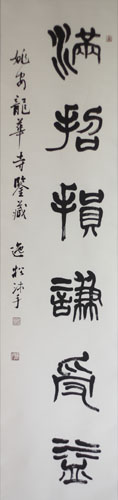 满招損謙受益
姚安龍華寺鑒藏
逸松沐手